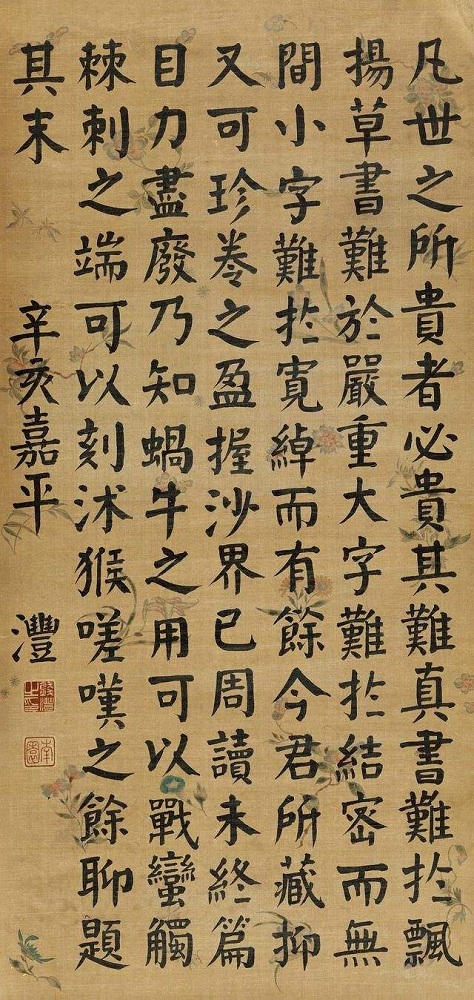 凡世之所貴者必貴其難真書難扵飄
揚草書難於嚴重大字難扵結密而無
間小字難扵寛綽而有餘今君所藏抑
又可珍卷之盈握沙界已周讀未終篇
目力盡廢乃知蝸牛之用可以戰蠻觸
棘刺之端可以刻沭猴嗟嘆之餘聊題
其末 辛亥嘉平 灃
南園